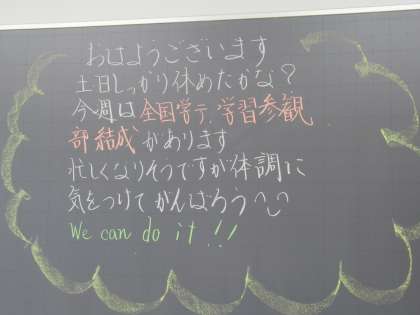 おはようございます
土日しっかり休めたかな?
今週は全国学テ、学習参観
部結成があります
忙しくなりそうですが体調に
気をつけてがんばろう
We can do it!!